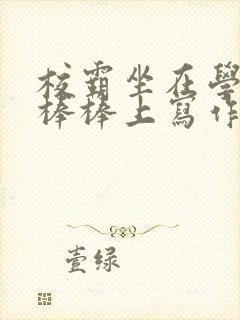 校霸坐在學
棒棒上寫作
壹绿